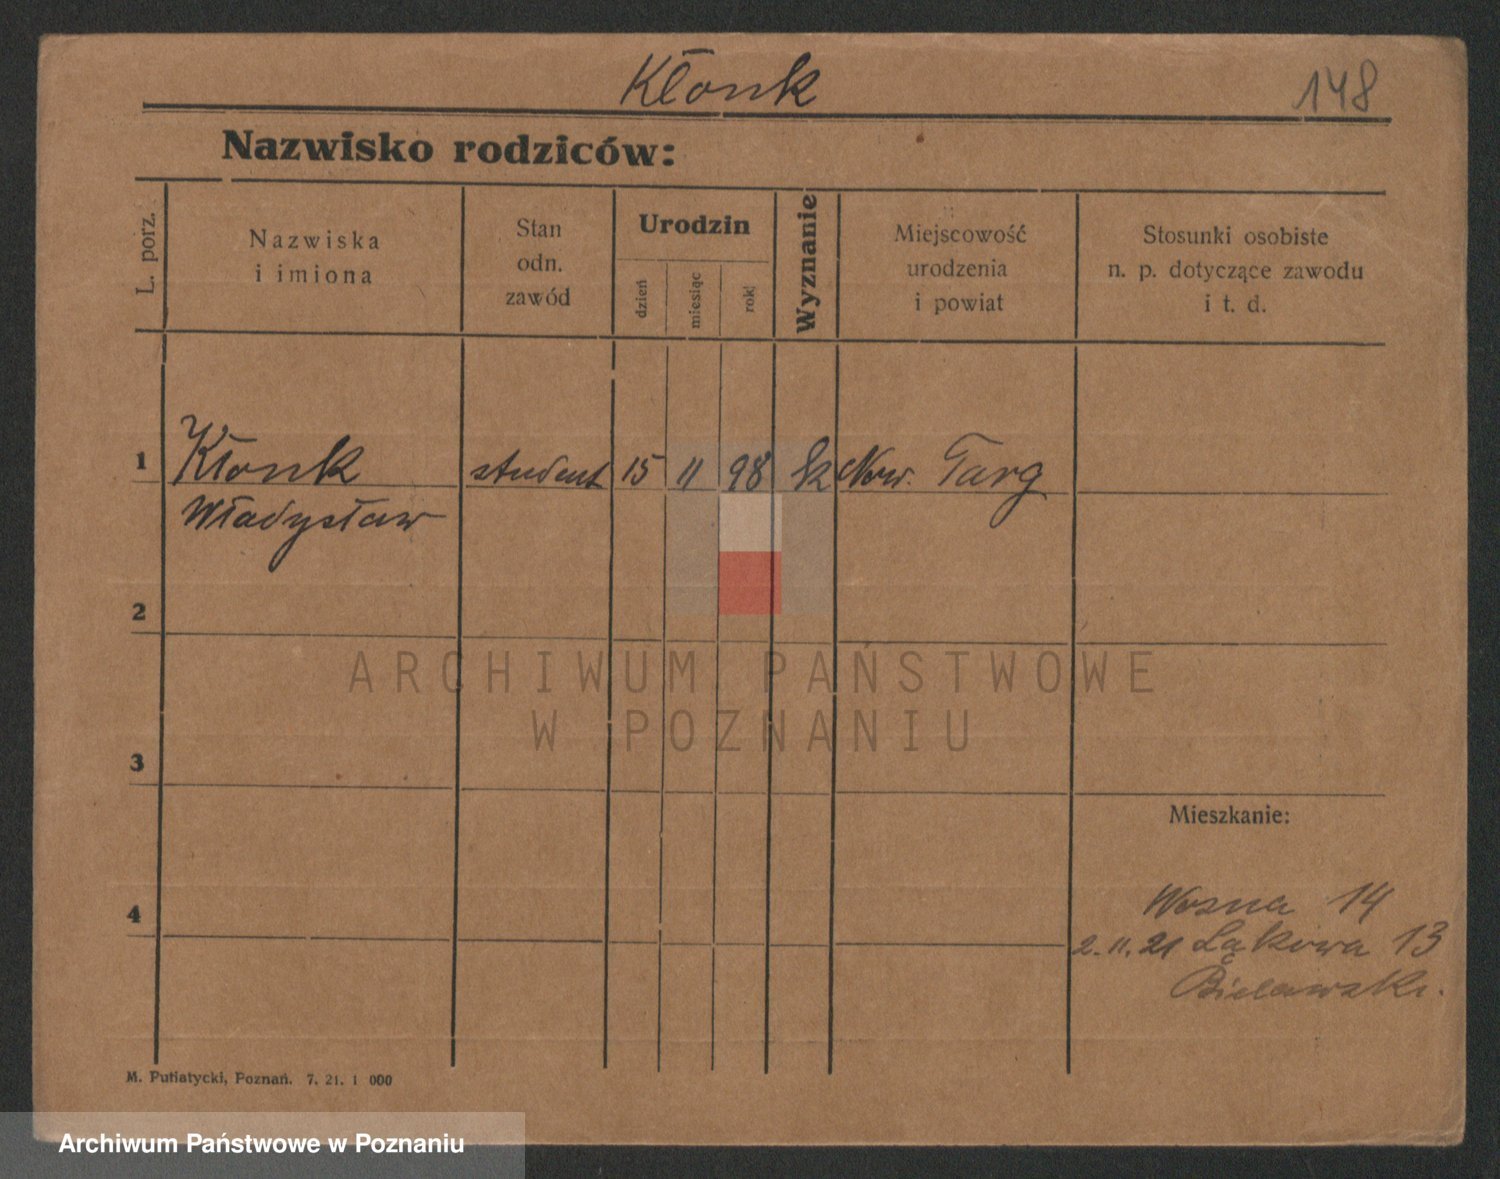 Kłonk
148
Nazwisko rodziców:
L. porz.
Nazwiska
i imiona
Stan
odn.
zawód
Urodzin
dzień
miesiąc
rok
Wyznanie
Miejscowość
urodzenia
i powiat
Stosunki osobiste
n. p. dotyczące zawodu
i t. d.
1
Kłonk student 15 11 98 k Now. Targ
Władysław
2
3
4
Mieszkanie:
Wozna 14
2. 11. 21 Łąkowa 13
Bielawski.
M. Putiatycki, Poznań. 7. 21. 1 000
ARCHIWUM PAŃSTWOWE
W POZNANIU
Archiwum Państwowe w Poznaniu